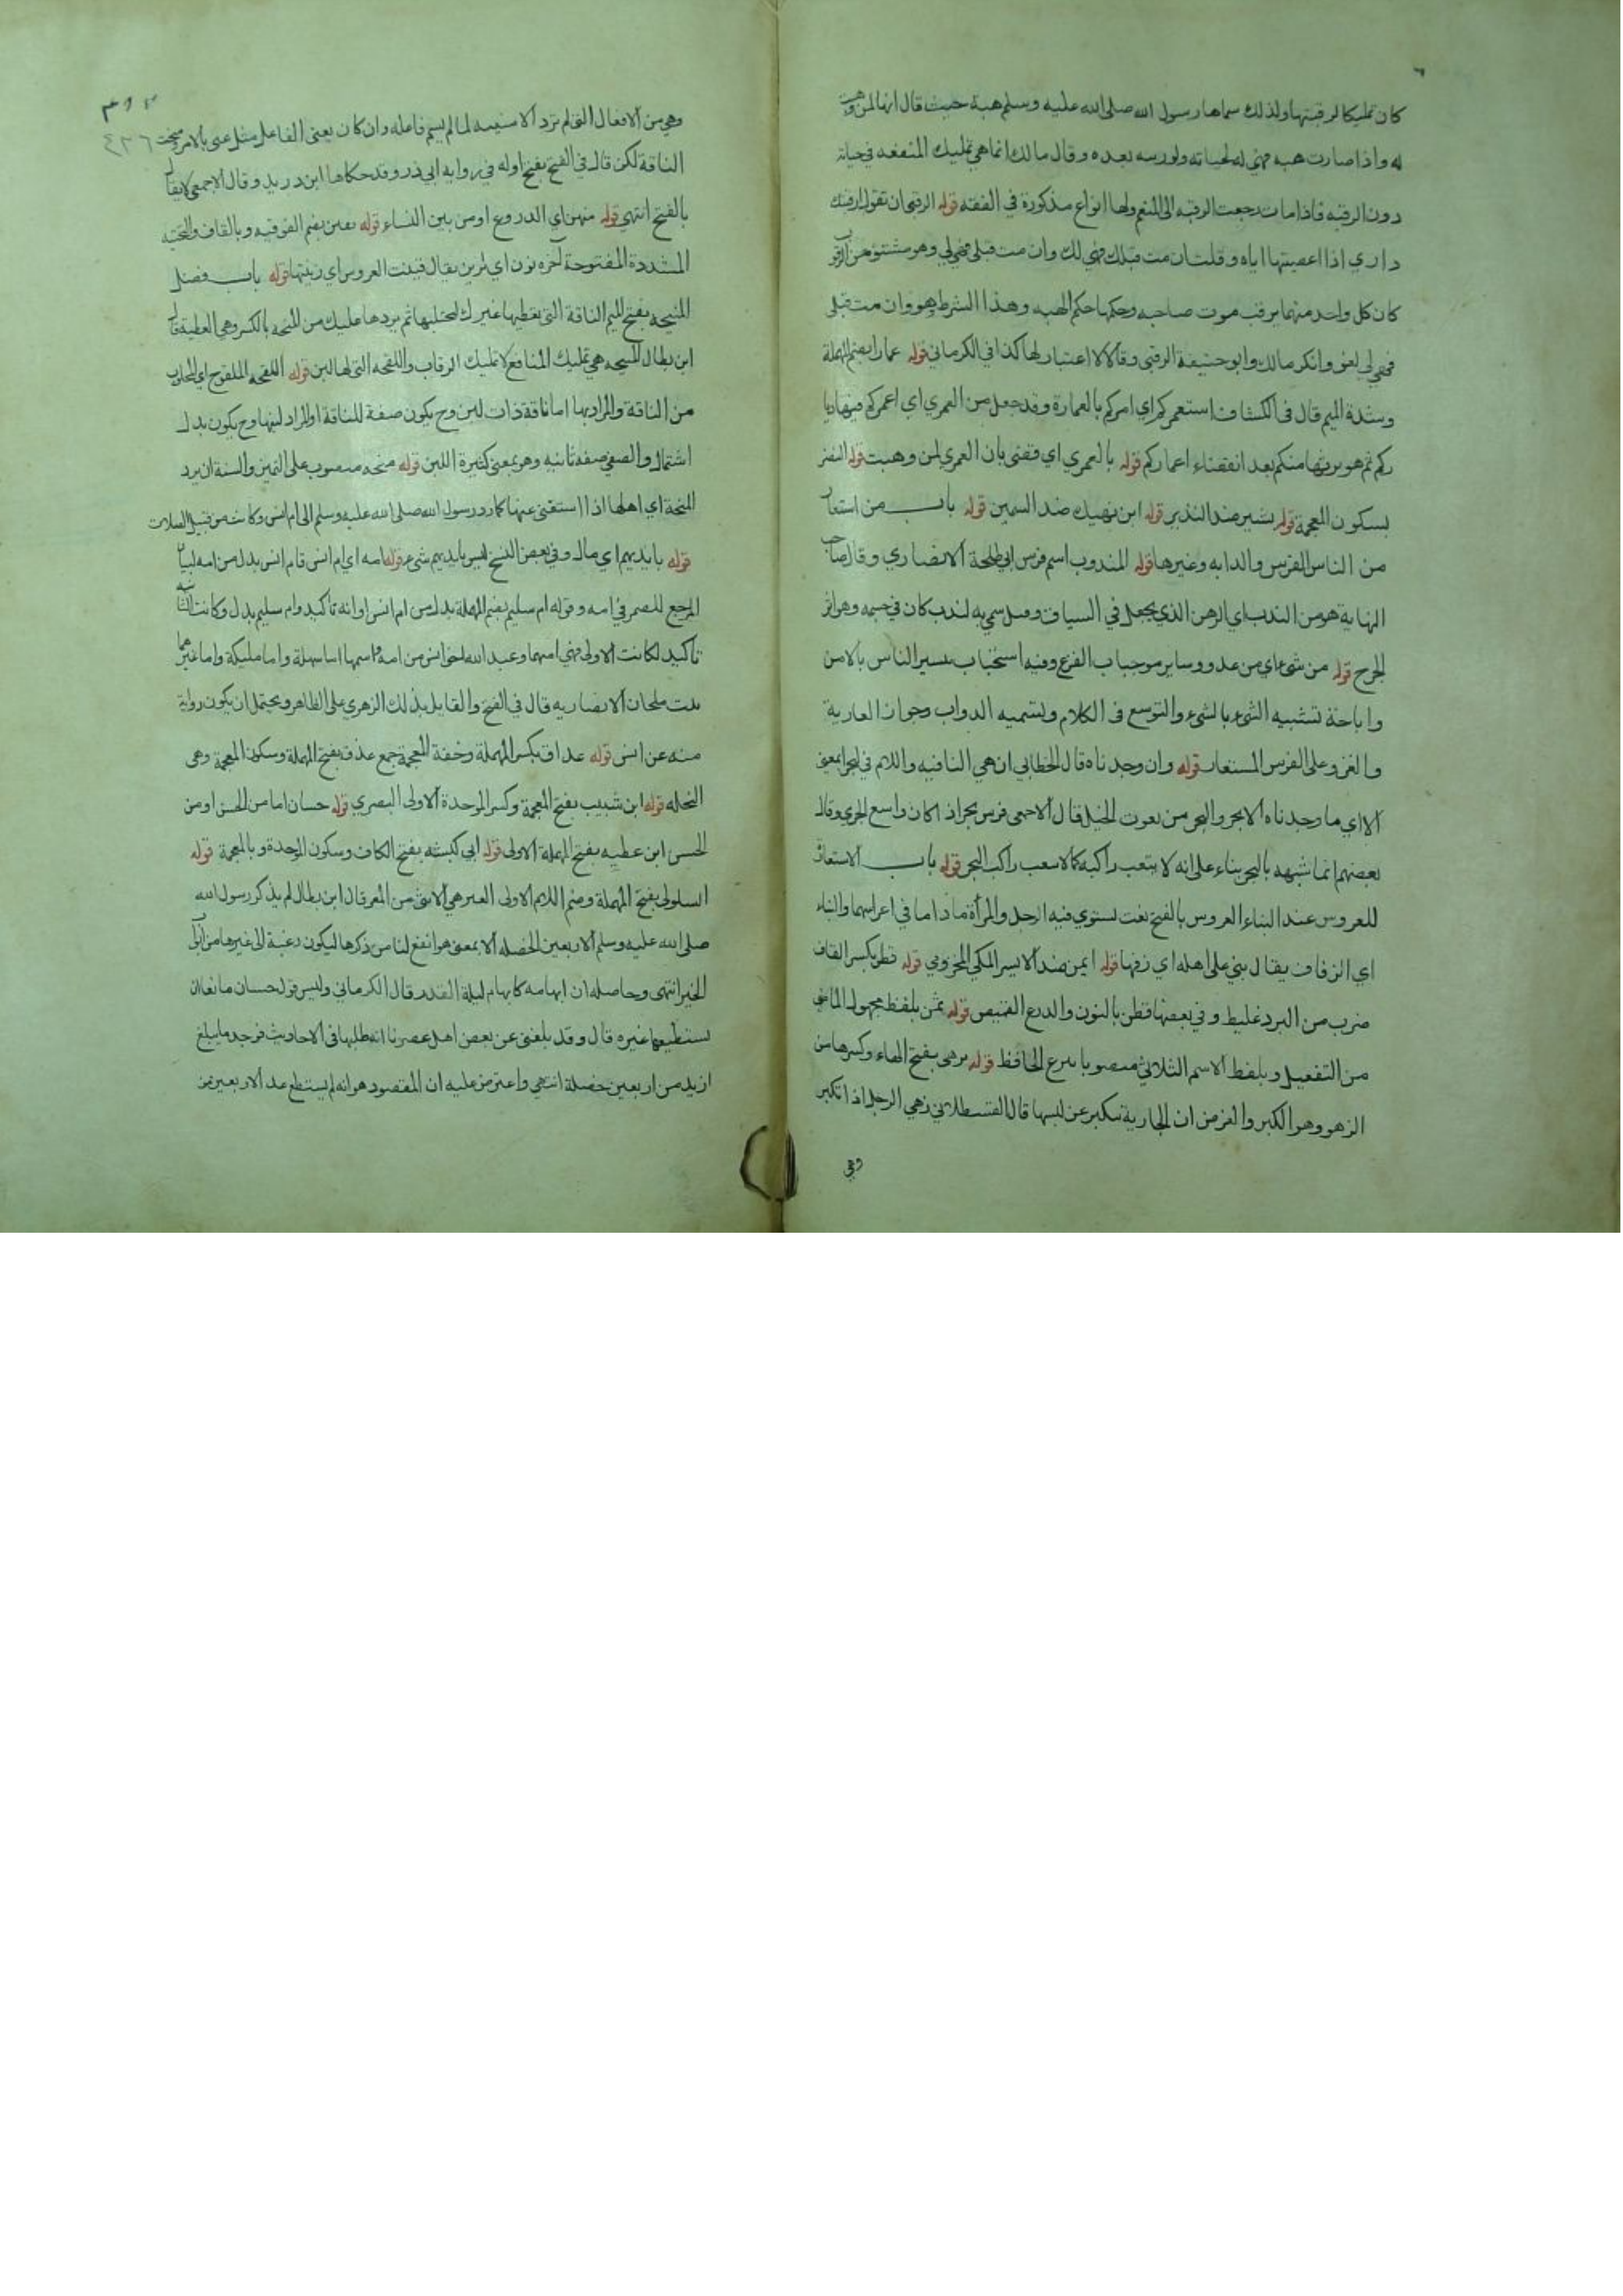 كان تمليكا لرقبتها ولذلك سماها رسول الله صلى الله عليه وسلم هبة حيث قال انها لمن وهبت
له واذا صارت هبه فهي له لحياته ولورسه بعده وقال مالك انما هي تمليك المنفعه في حياته
دون الرقبه فاذا مات رجعت الرقبه الى المنعم ولها انواع مذكورة في الفقه قوله الرقبى ان تقول ارقبتك
داري اذا اعصيتها اياه وقلت ان مت قبلك فهي لك وان مت قبلي فهي لي وهو مشتق من الرقوب
كان كل واحد منهما يرقب موت صاحبه وحكمها حكم الهبه وهذا الشرط هو وان مت قبلي
فهي لي لغو وانكر مالك وابو حنيفة الرقبى وقالا لا اعتبار لها كذا في الكرماني قوله عمارا بضم المهملة
وشدة الميم قال في الكشاف استعمركم اي امركم بالعمارة وقد جعل من العمري اي اعمركم فيها ديا
ركم ثم هو يرثها منكم بعد انقضاء اعماركم قوله بالعمري اي قضى بان العمري لمن وهبت قوله النضر
بسكون المعجمة قوله بشير ضد النذير قوله ابن نهيك ضد السمين قوله باب من استعار
من الناس الفرس والدابه وغيرها قوله المندوب اسم فرس ابي طلحة الانصاري وقال صاحب
النهاية هو من الندب اي الرهن الذي يجعل في السباق وقيل سمي به لندب كان في جسمه وهو اثر
الجرح قوله من شيء اي من عدو وساير موجبات الفزع وفيه استحباب تبشير الناس بالامن
واباحة تشبيه الشيء بالشيء والتوسع في الكلام وتسميه الدواب وجواز العارية
والغزو على الفرس المستعار قوله وان وجدناه قال الخطابي ان هي النافيه واللام في لبحرا بمعنى
الا اي ما وجدناه الا بحر والبحر من نعوت الخيل قال الاصمعي فرس بحر اذا كان واسع الجري وقال
بعضهم انما شبهه بالبحر بناء على انه لا يتعب راكبه كما لا يتعب راكب البحر قوله باب الاستعارة
للعروس عند البناء العروس بالفتح نعت يستوي فيه الرجل والمرأة ما داما في اعراسهما والبناء
اي الزفاف يقال بنى على اهله اي زفها قوله ايمن ضد الايسر المكي المخزومي قوله قطر بكسر القاف
ضرب من البرد غليظ وفي بعضها قطن بالنون والدرع القميص قوله ثمن بلفظ مجهول الماضي
من التفعيل وبلفظ الاسم الثلاثي منصوبا بنزع الخافظ قوله تزهى بفتح الهاء وكسرها من
الزهو وهو الكبر والغرض ان الجارية تتكبر عن لبسها قال القسطلاني زهي الرجل اذا تكبر
وهي
٤٢٦
وهي من الافعال التي لم ترد الا مبنيه لما لم يسم فاعله وان كان بمعنى الفاعل مثل عنى بالامر ونتجت
الناقة لكن قال في الفتح بفتح اوله في روايه ابي ذر وقد حكاها ابن دريد وقال الاصمعي لا يقال
بالفتح انتهى قوله منهن اي الدروع او من بين النساء قوله تقين بضم الفوقيه وبالقاف والتحتيه
المشددة المفتوحة آخره نون اي تزين يقال قينت العروس اي زينتها قوله باب فضل
المنيحه بفتح الميم الناقة التي تعطيها غيرك ليحتلبها ثم يردها عليك من المنحه بالكسر وهي العطية قال
ابن بطال المنيحه هي تمليك المنافع لا تمليك الرقاب واللقحه التي لها لبن قوله اللقحه الملقوح اي الحلوب
من الناقة والمراد بها اما ناقة ذات لبن وح يكون صفة للناقة او المراد لبنها وح يكون بدل
اشتمال والصفي صفه ثانيه وهو بمعنى كثيرة اللبن قوله منحه منصوب على التميز والسنة ان يرد
المنحة اي اهلها اذا استغنى عنها كما رد رسول الله صلى الله عليه وسلم الى ام انس وكانت من قبيل الصلات
قوله بايديهم اي مال وفي بعض النسخ ليس بايديهم شيء قوله امه اي ام انس فام انس بدل من امه لبيان
المرجع للضمير في امه وقوله ام سليم بضم المهملة بدل من ام انس او انه تأكيد وام سليم بدل وكانت الثانيه
تأكيد لكانت الاولى فهي امهما وعبد الله اخو انس من امه واسمها اما سهلة واما مليكة واما غيرهما
بنت ملحان الانصاريه قال في الفتح والقايل بذلك الزهري على الظاهر ويحتمل ان يكون رواية
منه عن انس قوله عذاق بكسر المهملة وخفة المعجمة جمع عذق بفتح المهملة وسكون المعجمة وهي
النخله قوله ابن شبيب بفتح المعجمة وكسر الموحدة الاولى البصري قوله حسان اما من الحسن او من
الحس ابن عطيه بفتح المهملة الاولى قوله ابي كبشه بفتح الكاف وسكون الموحدة وبالمعجمة قوله
السلولي بفتح المهملة وضم اللام الاولى العنز هي الانثى من المعز قال ابن بطال لم يذكر رسول الله
صلى الله عليه وسلم الاربعين الخصله الا بمعنى هو انفع لنا من ذكرها ليكون رغبة الى غيرها من ابواب
الخير انتهى وحاصله ان ابهامه كابهام ليلة القدر قال الكرماني وليس قول حسان مانعا ان
يستطيعها غيره قال وقد بلغني عن بعض اهل عصرنا انه طلبها في الاحاديث فوجد ما يبلغ
ازيد من اربعين خصلة انتهي واعترض عليه ان المقصود هو انه لم يستطع عد الاربعين من